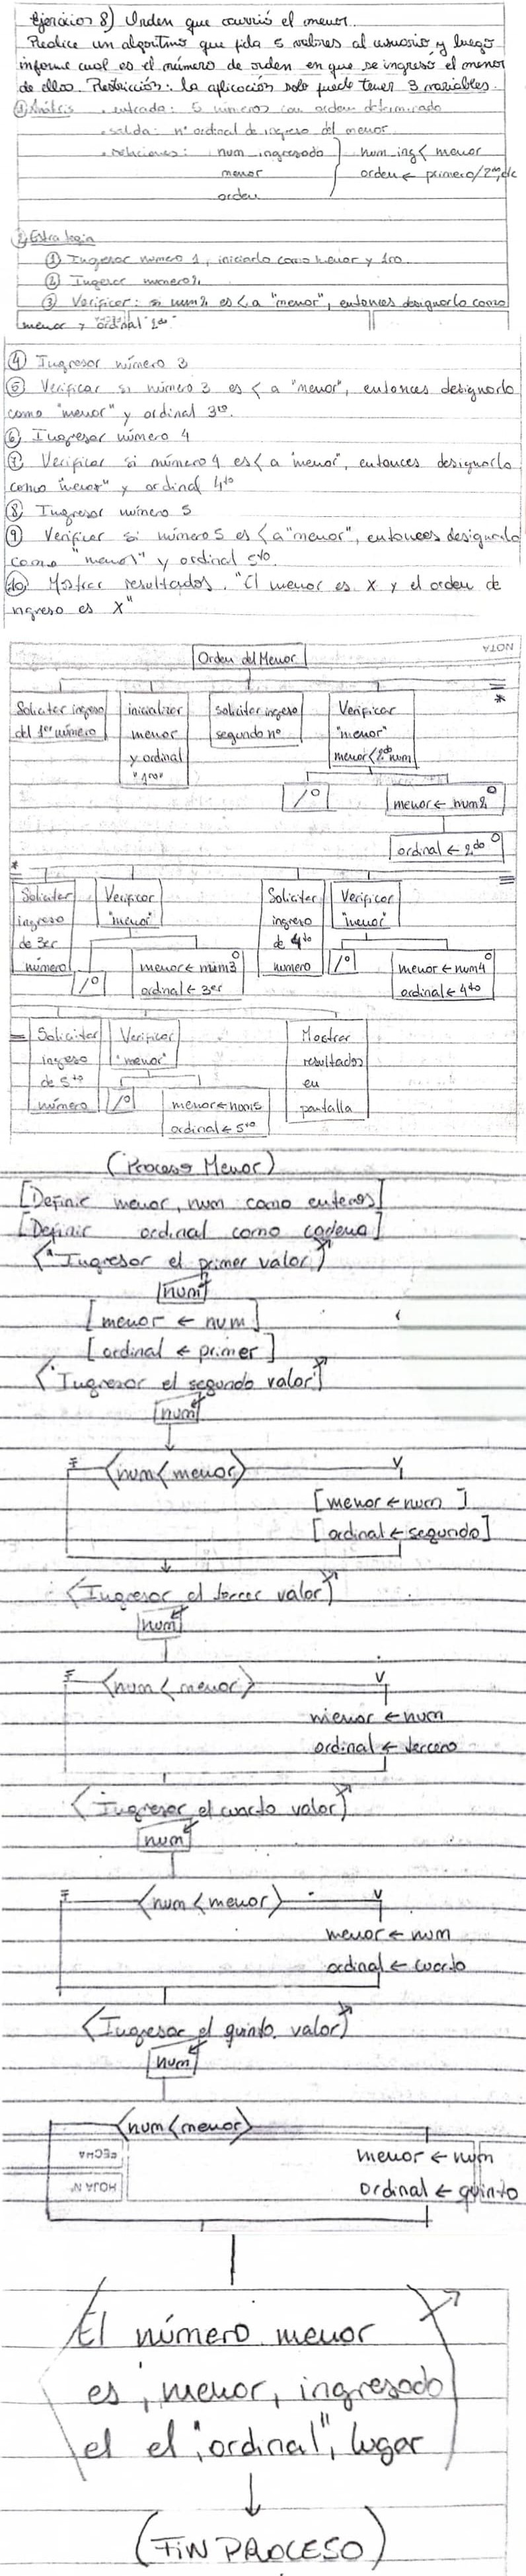 Ejercicio 8) Orden que ocurrió el menor.
Realice un algoritmo que pida 5 valores al usuario y luego
informe cual es el número de orden en que se ingresó el menor
de ellos. Restricción: la aplicación solo puede tener 3 variables.
① Análisis . entrada: 5 números con orden determinado
. salida: nº ordinal de ingreso del menor
. relaciones: num ingresado } num ing < menor
menor orden ← primero/2do, etc
orden
② Estrategia
① Ingresar número 1, iniciarlo como menor y 1ro.
② Ingresar número 2
③ Verificar: si num2 es < a "menor", entonces designarlo como
menor y ordinal "2do"
④ Ingresar número 3
⑤ Verificar si número 3 es < a "menor", entonces designarlo
como "menor" y ordinal 3ro.
⑥ Ingresar número 4
⑦ Verificar si número 4 es < a "menor", entonces designarlo
como "menor" y ordinal 4to
⑧ Ingresar número 5
⑨ Verificar si número 5 es < a "menor", entonces designarlo
como "menor" y ordinal 5to.
⑩ Mostrar resultados. "El menor es X y el orden de
ingreso es X"
NOTA
Orden del Menor
Solicitar ingreso
del 1er número
inicializar
menor
y ordinal
"1ro"
solicitar ingreso
segundo nº
Verificar
"menor"
menor < 2do num
*
/ º
menor ← num2 º
ordinal ← 2do º
*
Solicitar
ingreso
de 3er
número
Verificar
"menor"
/ º
menor ← num3 º
ordinal ← 3er
Solicitar
ingreso
de 4to
numero
Verificar
"menor"
/ º
menor ← num4 º
ordinal ← 4to
Solicitar
ingreso
de 5to
número
Verificar
"menor"
/ º
menor ← num5 º
ordinal ← 5to
Mostrar
resultados
en
pantalla
(Proceso Menor)
[Definir menor, num como enteros]
[Definir ordinal como cadena]
"Ingresar el primer valor"
num
[menor ← num]
[ordinal ← primer]
"Ingresar el segundo valor"
num
F num < menor V
[menor ← num]
[ordinal ← segundo]
Ingresar el tercer valor
num
F num < menor V
menor ← num
ordinal ← tercero
Ingresar el cuarto valor
num
F num < menor V
menor ← num
ordinal ← cuarto
Ingresar el quinto valor
num
num < menor
FECHA
menor ← num
HOJA Nº
ordinal ← quinto
El número menor
es", menor, ingresado
el el", ordinal", lugar
(FIN PROCESO)